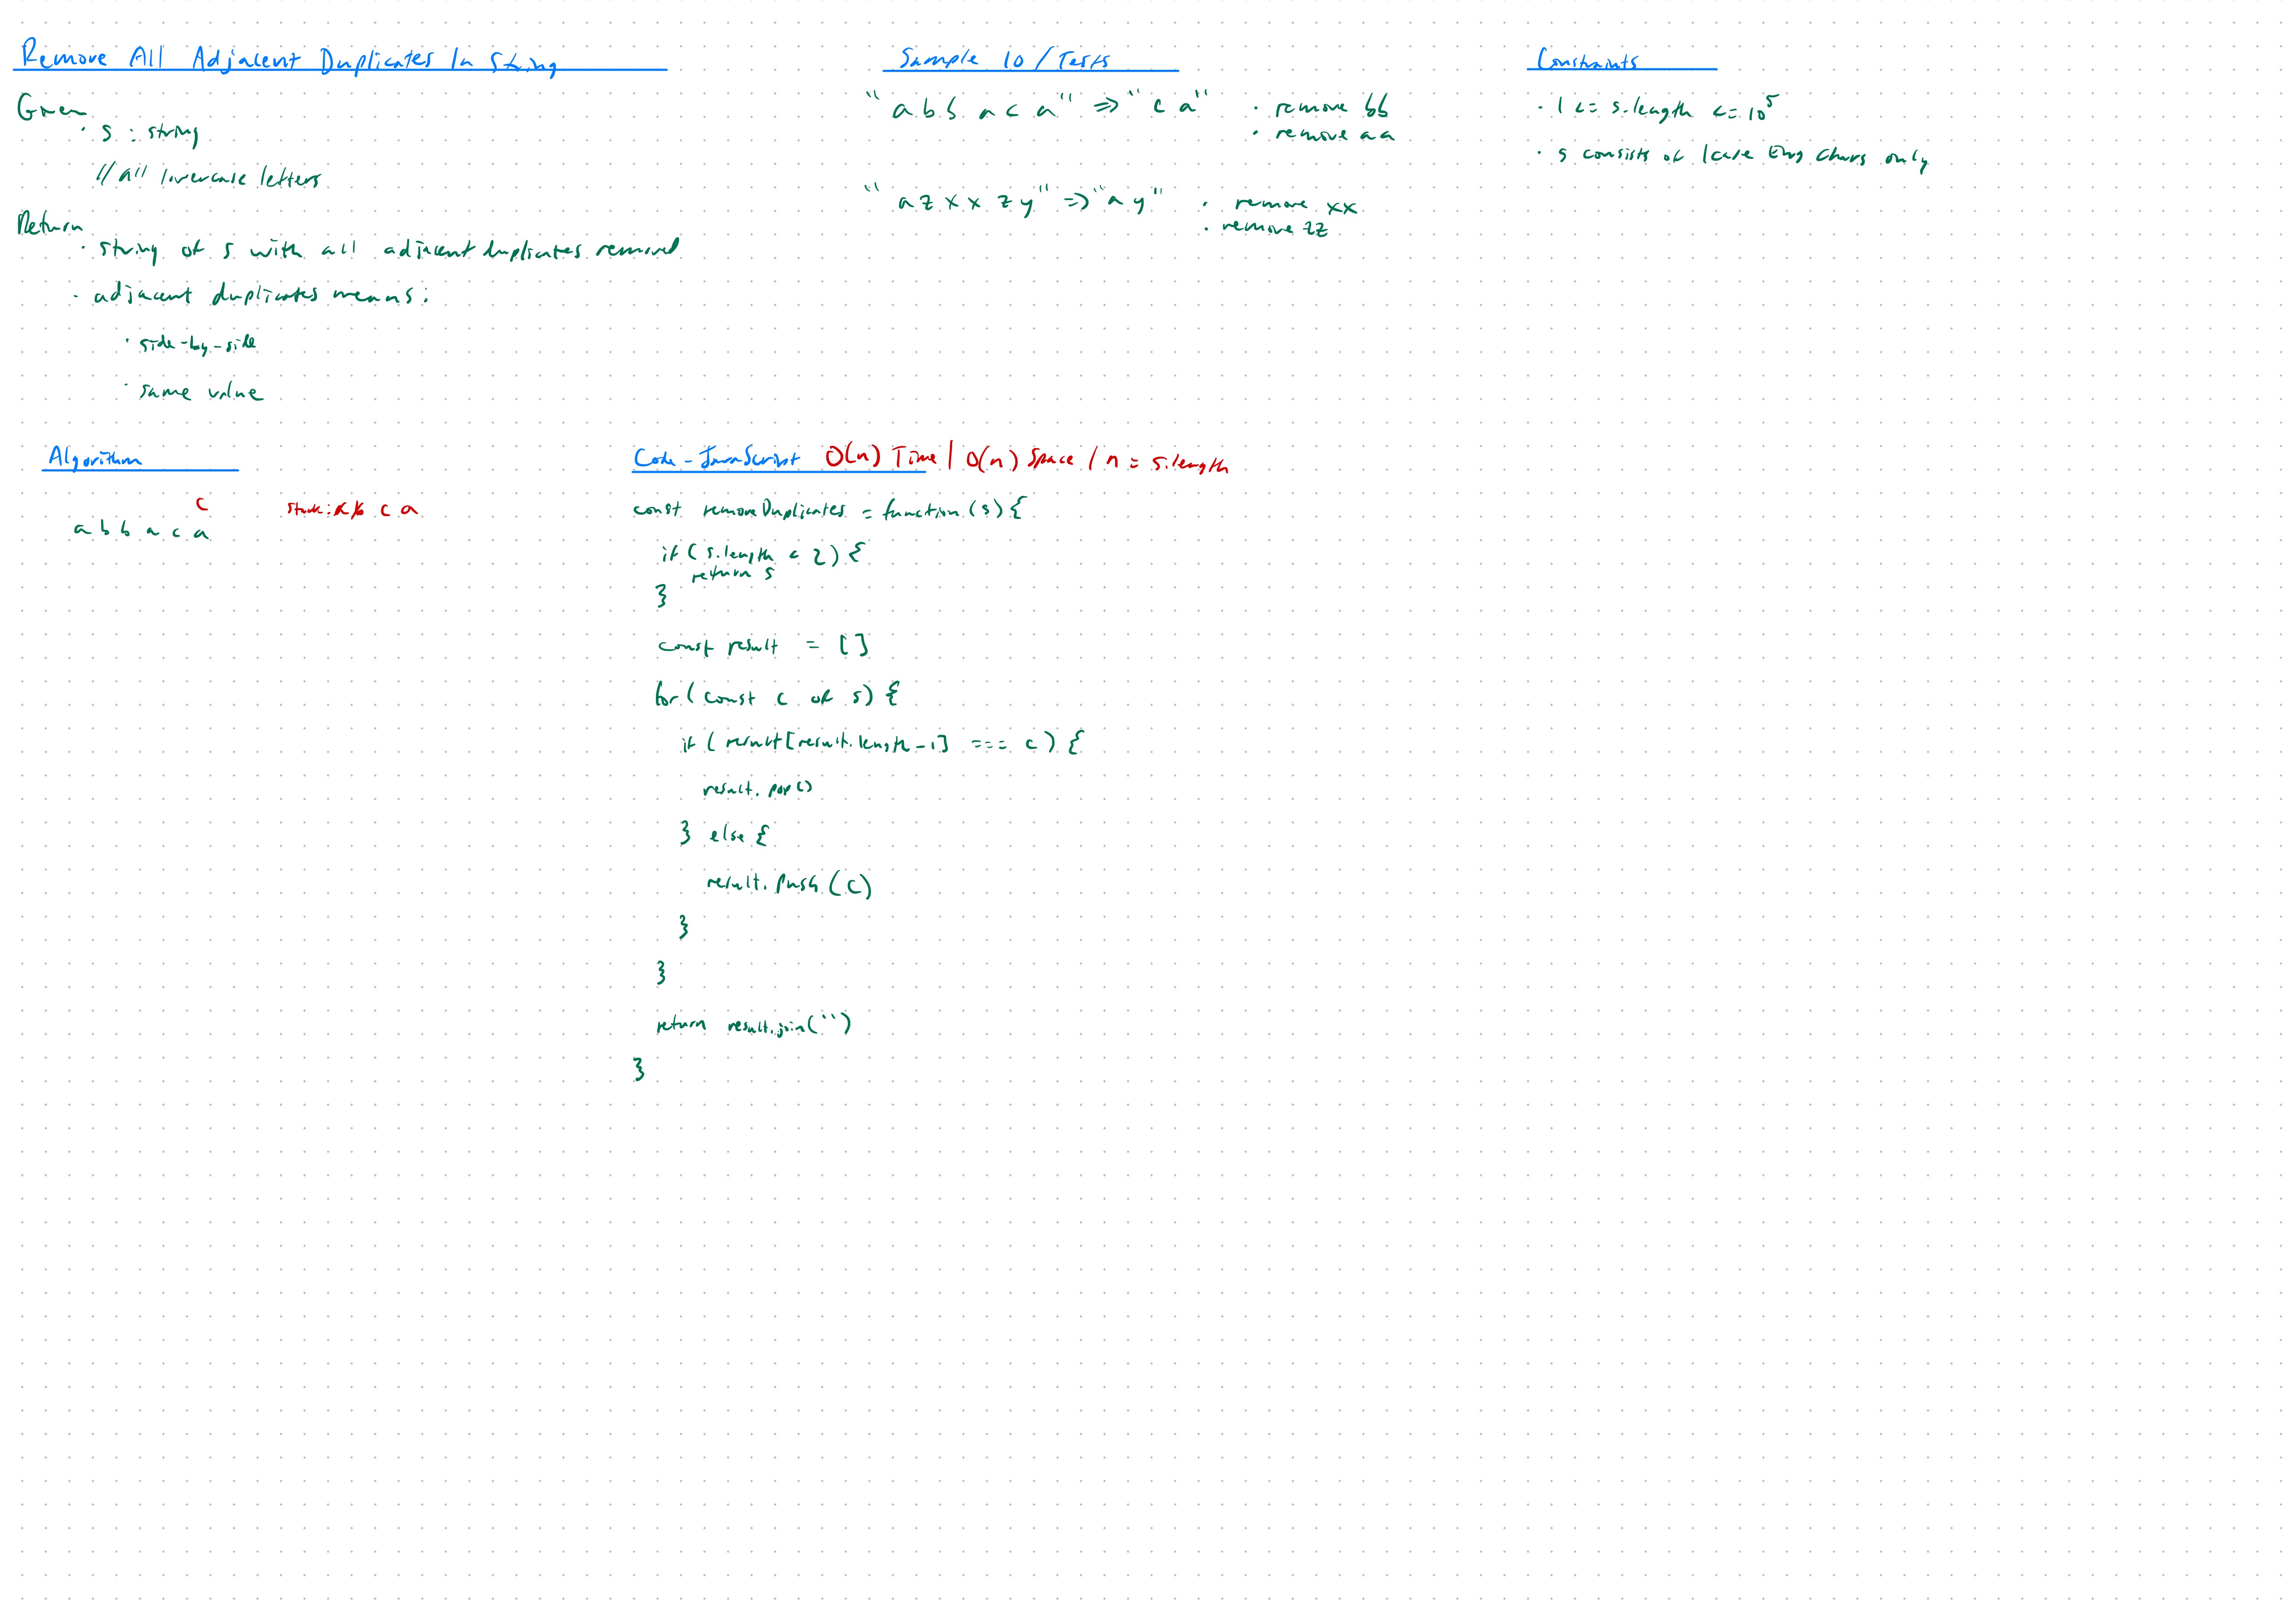 Remove All Adjacent Duplicates In String
Given
· s : string
// all lowercase letters
Return
· string of s with all adjacent duplicates removed
· adjacent duplicates means:
· side-by-side
· same value
Sample IO / Tests
"abbaca" => "ca" · remove bb
· remove aa
"azxxzy" => "ay" · remove xx
· remove zz
Constraints
· 1 <= s.length <= 10^5
· s consists of lcase Eng chars only
Algorithm
c
a b b a c a
stack: a b c a
Code - JavaScript O(n) Time | O(n) Space | n = s.length
const removeDuplicates = function(s) {
if (s.length < 2) {
return s
}
const result = []
for (const c of s) {
if (result[result.length-1] === c) {
result.pop()
} else {
result.push(c)
}
}
return result.join('')
}